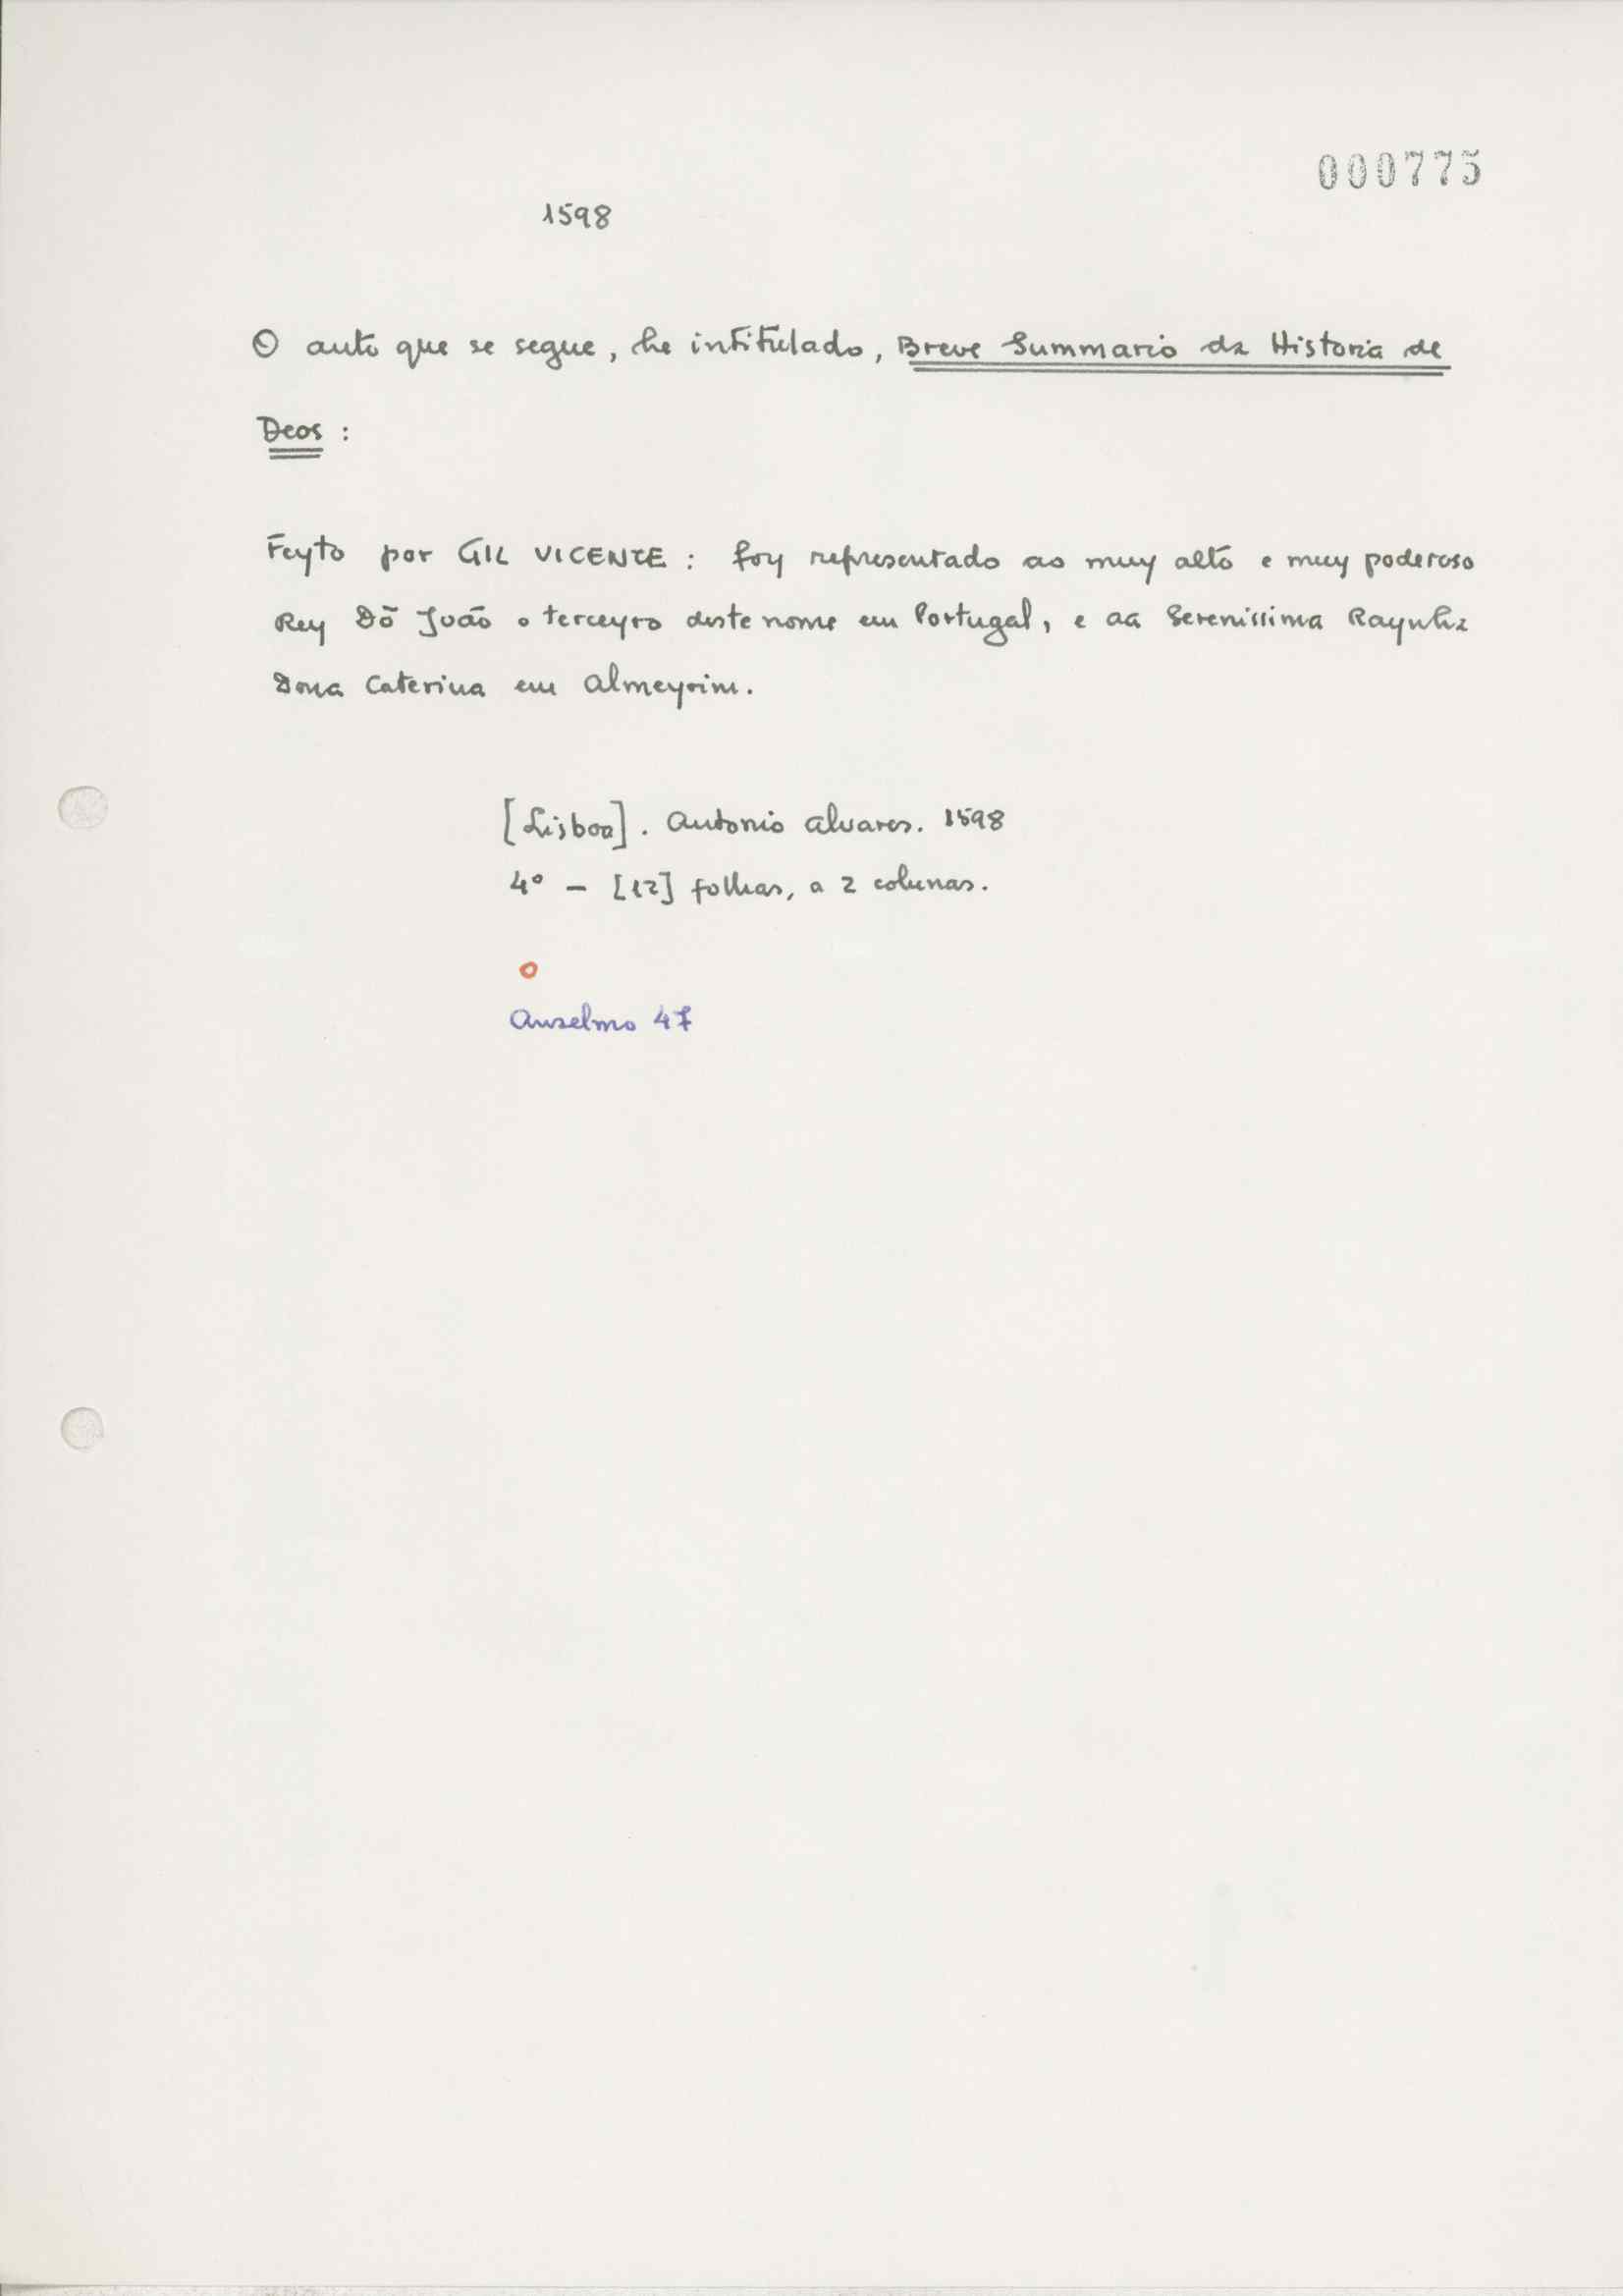 000775
1598
O auto que se segue, he intitulado, Breve Summario da Historia de
Deos :
Feyto por GIL VICENTE : foy representado ao muy alto e muy poderoso
Rey Dõ João o terceyro deste nome em Portugal, e aa Serenissima Raynha
Dona Caterina em Almeyrim.
[Lisboa]. Antonio Alvares. 1598
4º - [12] folhas, a 2 colunas.
Anselmo 47